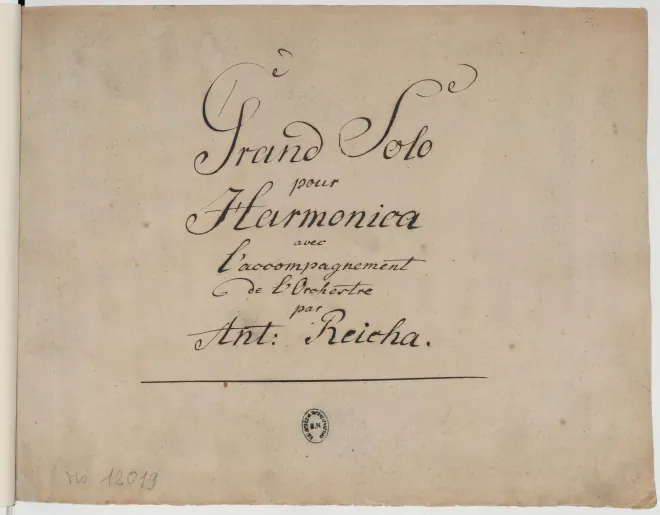 Grand Solo
pour
Harmonica
avec
l'accompagnement
de l'Orchestre
par
Ant: Reicha.
B.N
No 12019